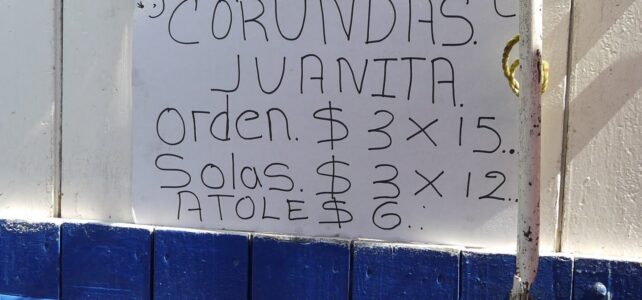 CORUNDAS.
JUANITA.
Orden. $ 3 x 15..
Solas. $ 3 x 12..
ATOLE $ 6..